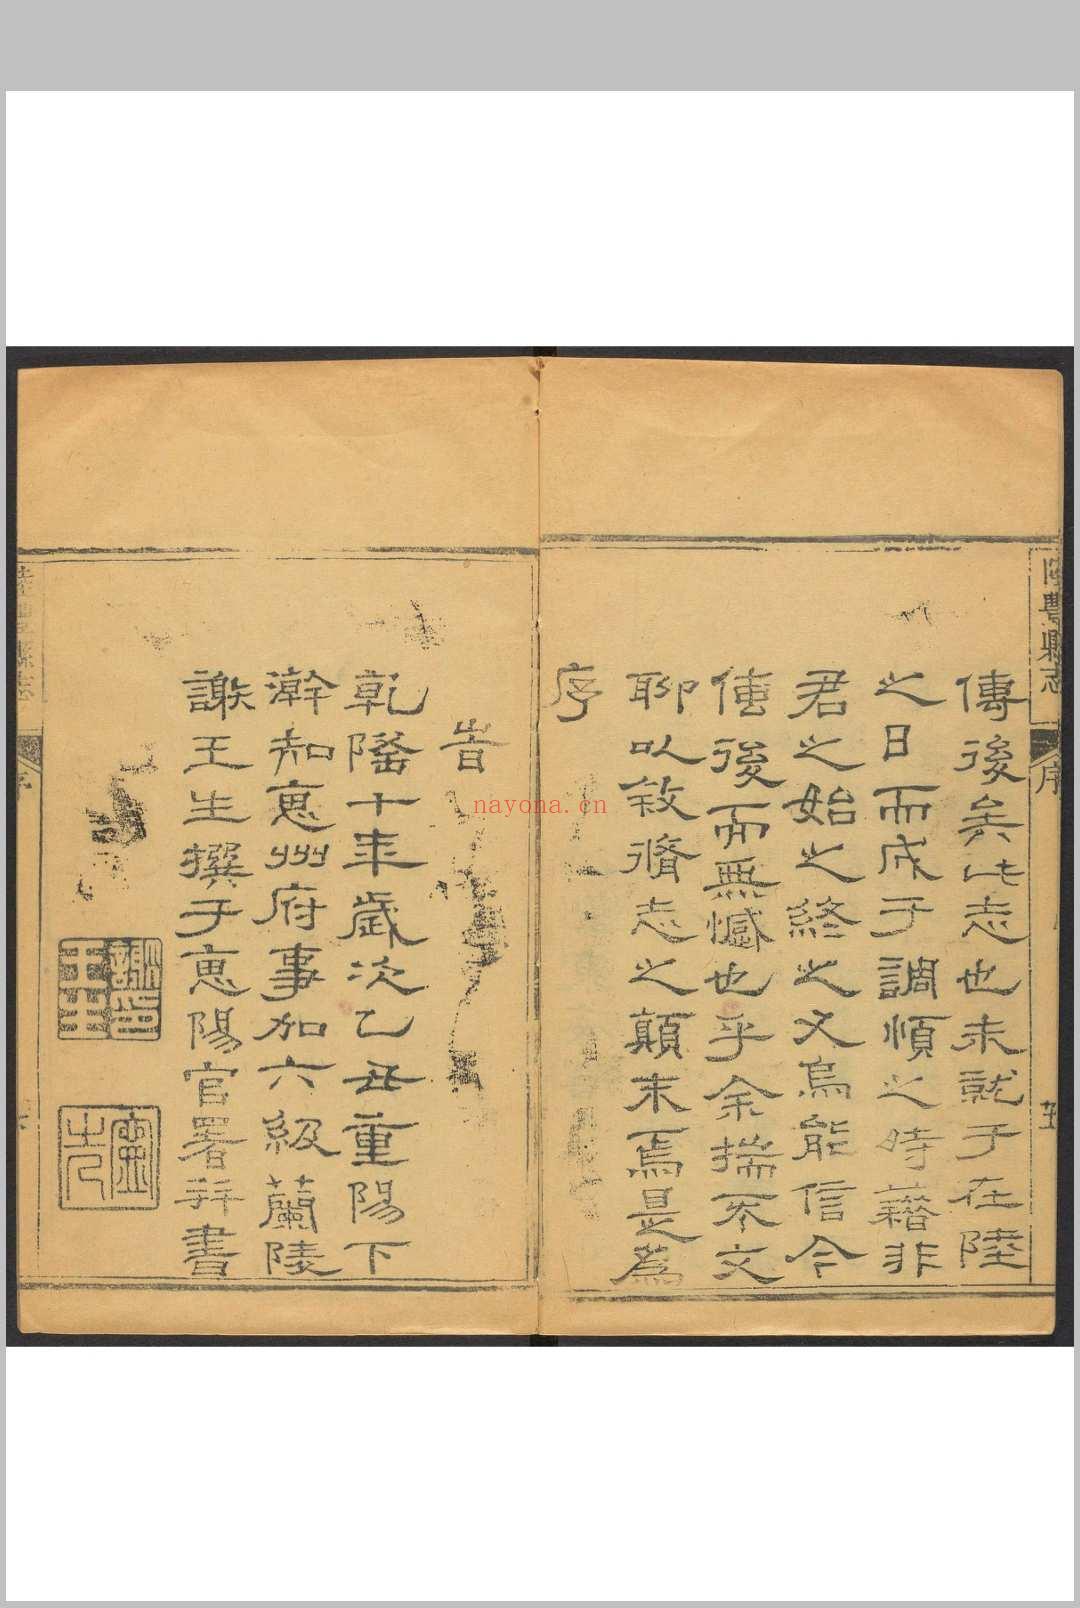 陸豐縣志
序
五
傳後矣此志也未就于在陸
之日而成于調順之時藉非
君之始之終之又烏能信今
傳後而無憾也乎余揣不文
聊以敘脩志之顛末焉是為
序
nayona.cn
旹
乾隆十年歲次乙丑重陽下
澣知惠州府事加六級蘭陵
謝王生撰于惠陽官署并書
陸豐縣志
序